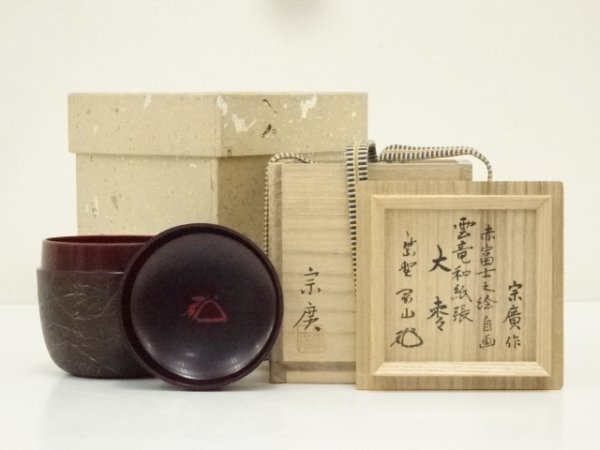 宗廣作
赤富士之絵自画
雲竜和紙張
大棗
紫野
宗廣